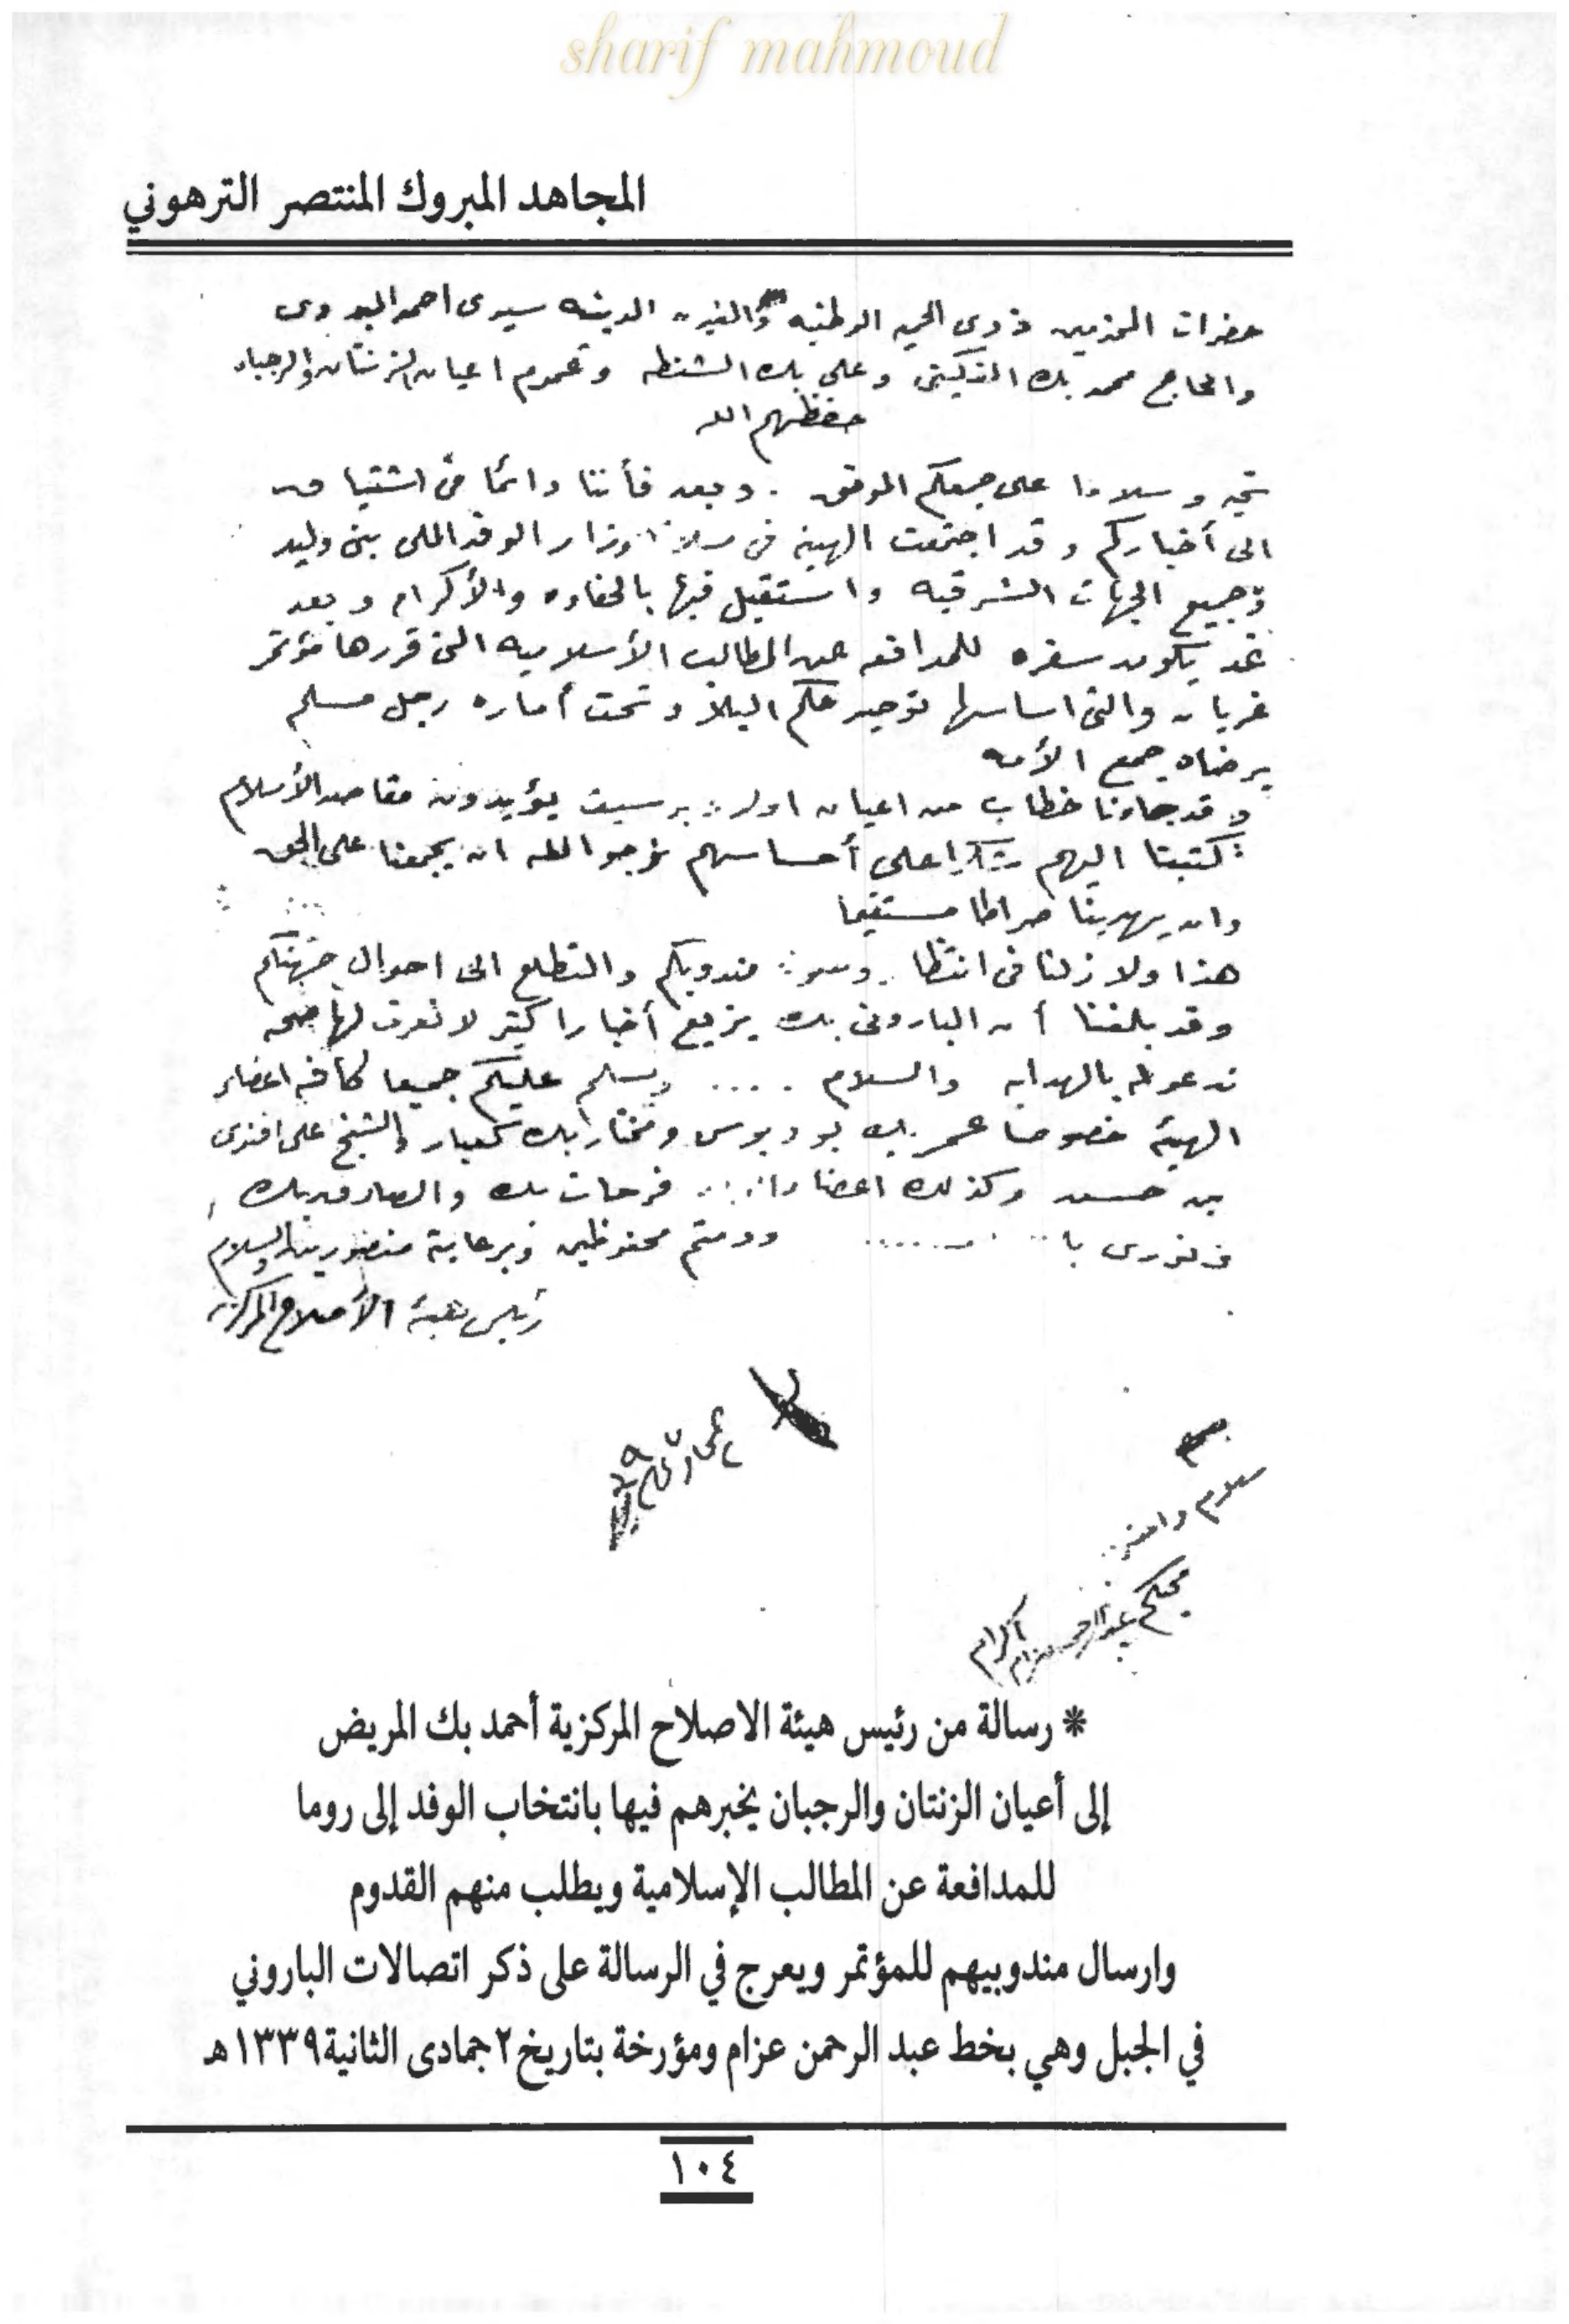 sharif mahmoud
المجاهد المبروك المنتصر الترهوني
حضرات المحترمين ذوى الحميه الوطنيه والغيرة الدينيه سيدى احمد البدوى
والحاج محمد بك وعلى بك الشنطه وعموم اعيان الزنتان والرجبان
حفظهم الله
تحية وسلاما على جمعكم الموفق . وبعد فأننا دائما فى اشتياق
الى أخباركم وقد اجتمعت الهيئه فى وزار الوفد بنى وليد
وجميع الجهات الشرقيه واستقبل فيها بالحفاوه والأكرام وبعد
غد يكون سفره للمدافعه عن المطالب الأسلاميه التى قررها مؤتمر
غريان والتى اساسها توحيد حكم البلاد وتحت أماره رجل مسلم
يرضاه جمع الأمه
وقد جاءنا خطاب من اعيان يؤيدون مقاصد الأسلام
كتبنا اليهم شكرا على أحساسهم نرجو الله ان يجمعنا على الحق
وان يهدينا صراطا مستقيما
هذا ولا زلنا فى انتظار مندوبكم والتطلع الى احوال جهتكم
وقد بلغنا أن البارونى بك يزيع أخبارا كثير لا نعرف لها صحه
ندعو له بالهدايه والسلام ..... ويسلم عليكم جميعا كافة اعضاء
الهيئه خصوصا عمر بك بودبوس ومختار بك كعبار والشيخ على افندى
بن حسن وكذلك اعضاء فرحات بك والصادق بك
ونورى با ........ ودمتم محفوظين وبرعاية منصورين والسلام
رئيس هيئة الأصلاح المركزيه
سلام
محبكم عبد الرحمن عزام
* رسالة من رئيس هيئة الاصلاح المركزية أحمد بك المريض
إلى أعيان الزنتان والرجبان يخبرهم فيها بانتخاب الوفد إلى روما
للمدافعة عن المطالب الإسلامية ويطلب منهم القدوم
وارسال مندوبيهم للمؤتمر ويعرج في الرسالة على ذكر اتصالات الباروني
في الجبل وهي بخط عبد الرحمن عزام ومؤرخة بتاريخ ٢ جمادى الثانية ١٣٣٩هـ
١٠٤